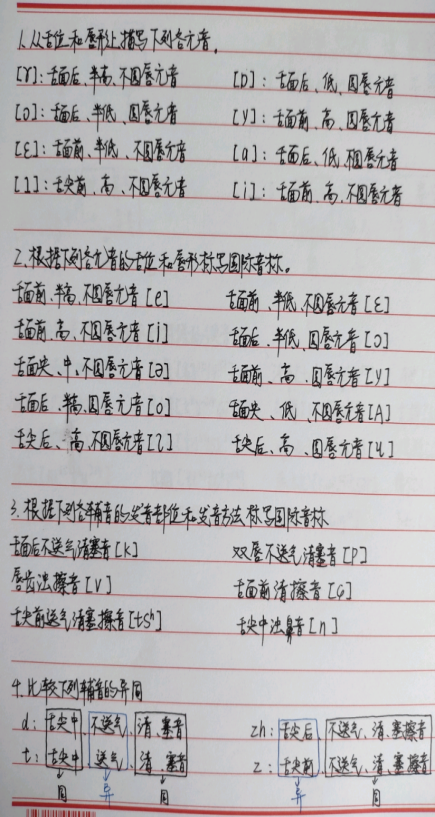 1.从舌位和唇形上描写下列各元音。
[ɤ]:舌面后、半高、不圆唇元音 [ɒ]:舌面后、低、圆唇元音
[ɔ]:舌面后、半低、圆唇元音 [y]:舌面前、高、圆唇元音
[ɛ]:舌面前、半低、不圆唇元音 [ɑ]:舌面后、低、不圆唇元音
[ɿ]:舌尖前、高、不圆唇元音 [i]:舌面前、高、不圆唇元音
2.根据下列各元音的舌位和唇形标写国际音标。
舌面前、半高、不圆唇元音[e] 舌面前、半低、不圆唇元音[ɛ]
舌面前、高、不圆唇元音[i] 舌面后、半低、圆唇元音[ɔ]
舌面央、中、不圆唇元音[ə] 舌面前、高、圆唇元音[y]
舌面后、半高、圆唇元音[o] 舌面央、低、不圆唇元音[A]
舌尖后、高、不圆唇元音[ʅ] 舌尖后、高、圆唇元音[ʯ]
3.根据下列各辅音的发音部位和发音方法标写国际音标
舌面后不送气清塞音[k] 双唇不送气清塞音[p]
唇齿浊擦音[v] 舌面前清擦音[ɕ]
舌尖前送气清塞擦音[tsʰ] 舌尖中浊鼻音[n]
4.比较下列辅音的异同
d:舌尖中、不送气、清、塞音 zh:舌尖后、不送气、清、塞擦音
t:舌尖中、送气、清、塞音 z:舌尖前、不送气、清、塞擦音
同 异 同 异 同